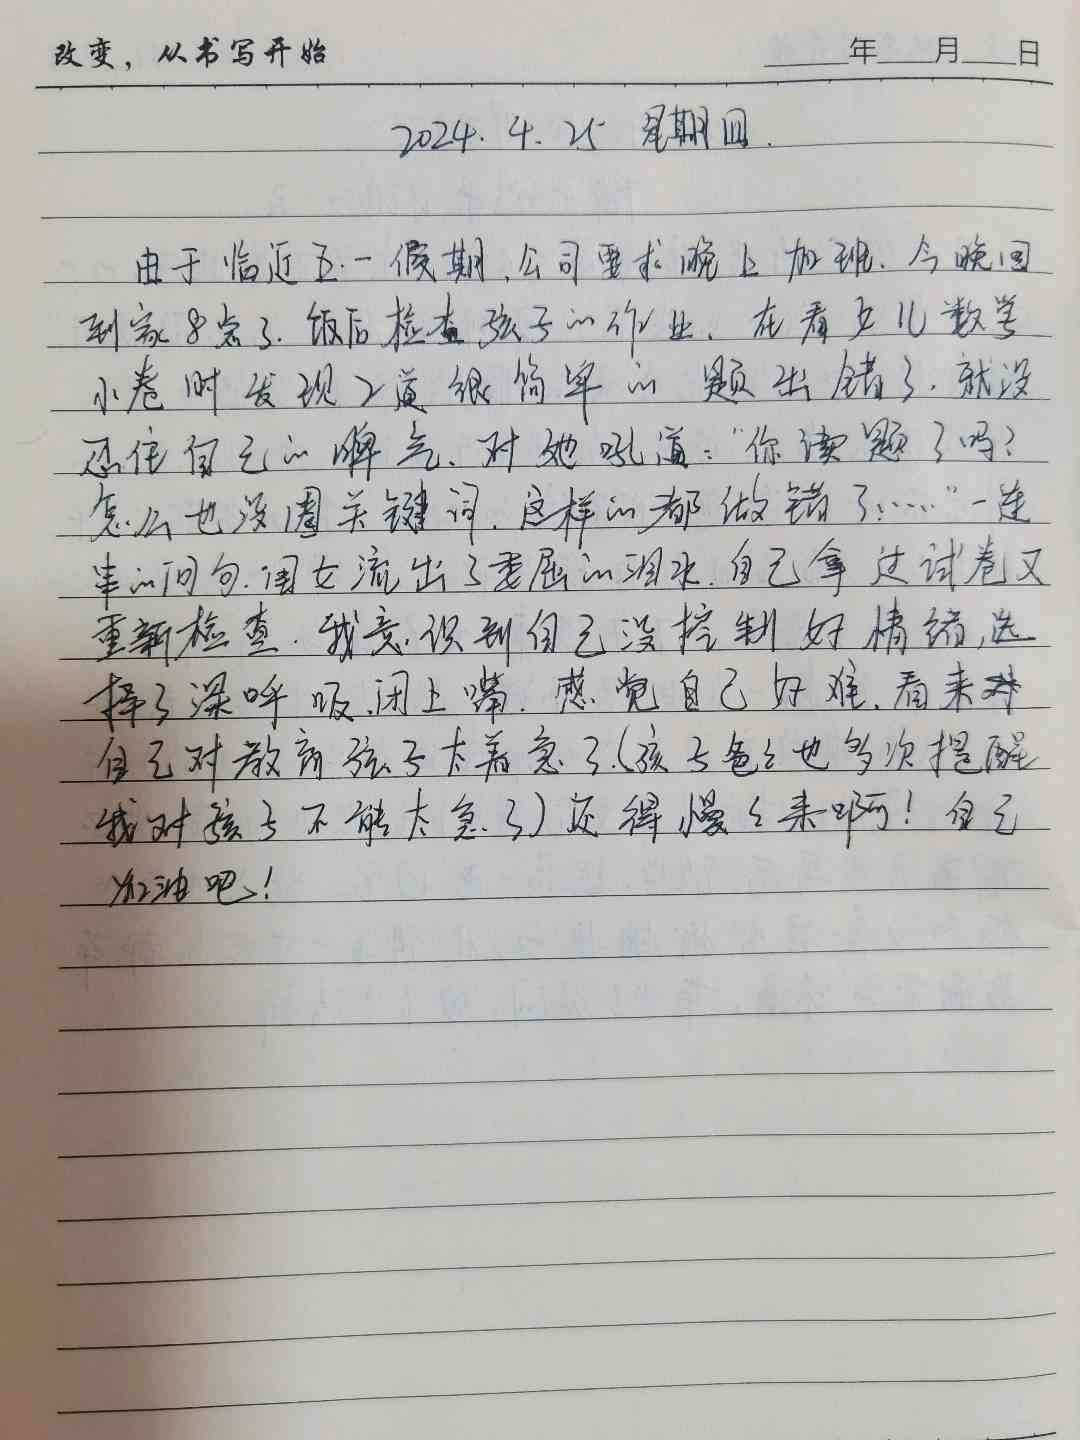 改变，从书写开始
年 月 日
2024.4.25 星期四.
由于临近五.一假期,公司要求晚上加班.今晚回
到家8点了.饭后检查孩子的作业.在看女儿数学
小卷时发现2道很简单的题出错了.就没
忍住自己的脾气.对她吼道:“你读题了吗?
怎么也没圈关键词.这样的都做错了……”一连
串的问句.闺女流出了委屈的泪水.自己拿过试卷又
重新检查.我意识到自己没控制好情绪,选
择了深呼吸,闭上嘴.感觉自己好难.看来
自己对教育孩子太着急了.(孩子爸爸也多次提醒
我对孩子不能太急了)还得慢慢来啊!自己
加油吧!